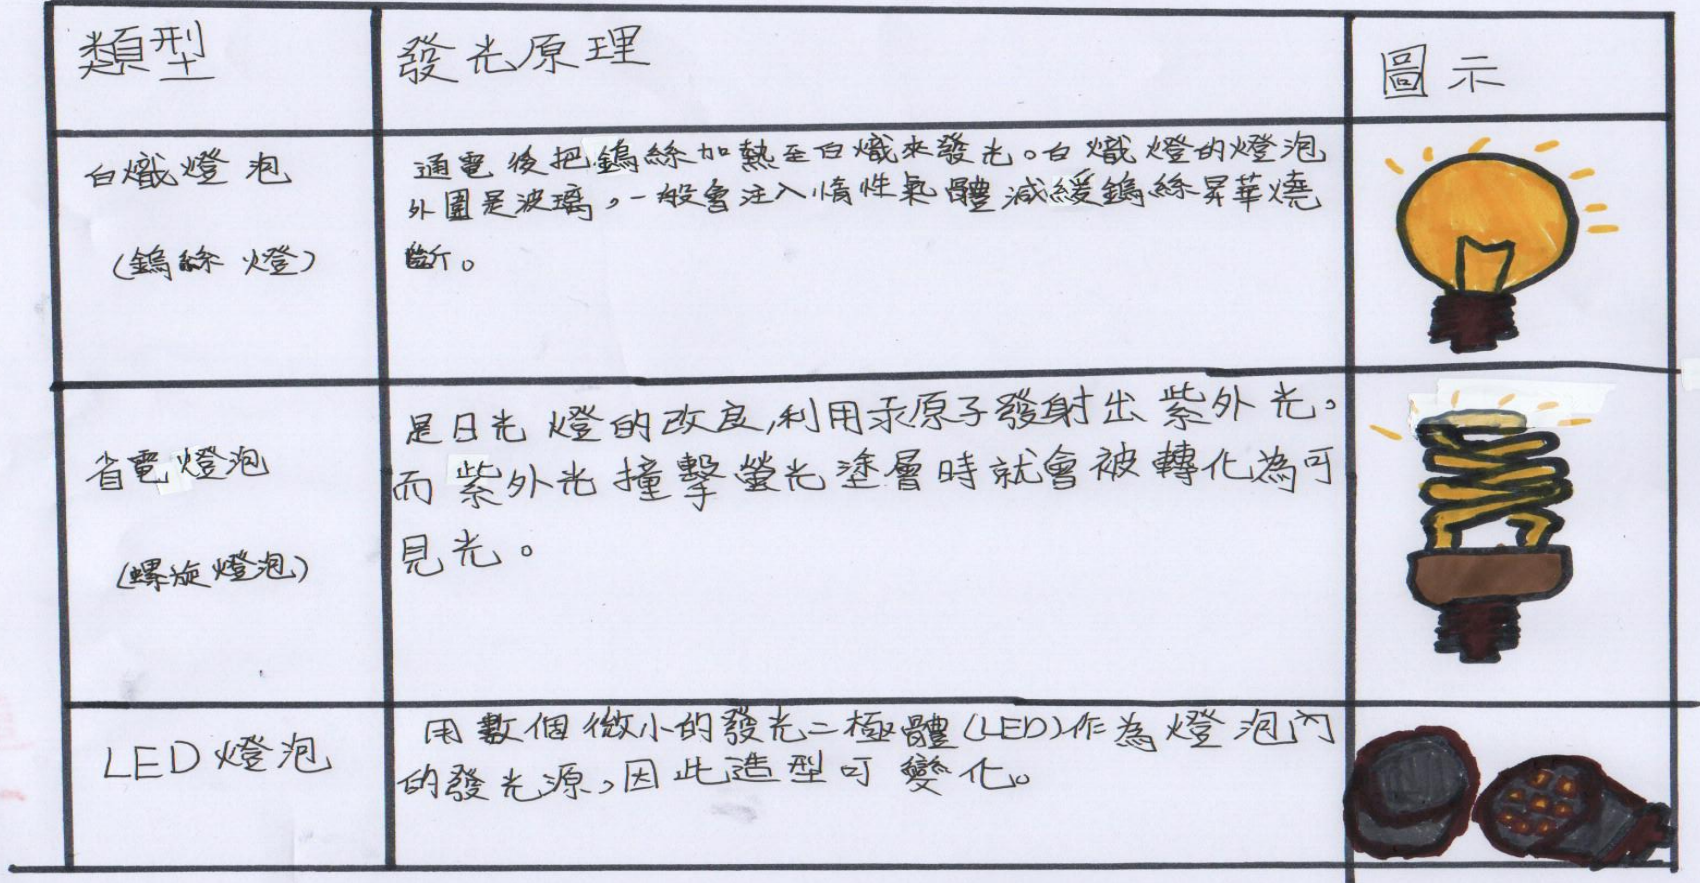 類型
發光原理
圖示
白熾燈泡
(鎢絲燈)
通電後把鎢絲加熱至白熾來發光。白熾燈的燈泡
外圍是玻璃，一般會注入惰性氣體減緩鎢絲昇華燒
斷。
省電燈泡
(螺旋燈泡)
是日光燈的改良,利用汞原子發射出紫外光。
而紫外光撞擊螢光塗層時就會被轉化為可
見光。
LED燈泡
用數個微小的發光二極體(LED)作為燈泡內
的發光源,因此造型可變化。